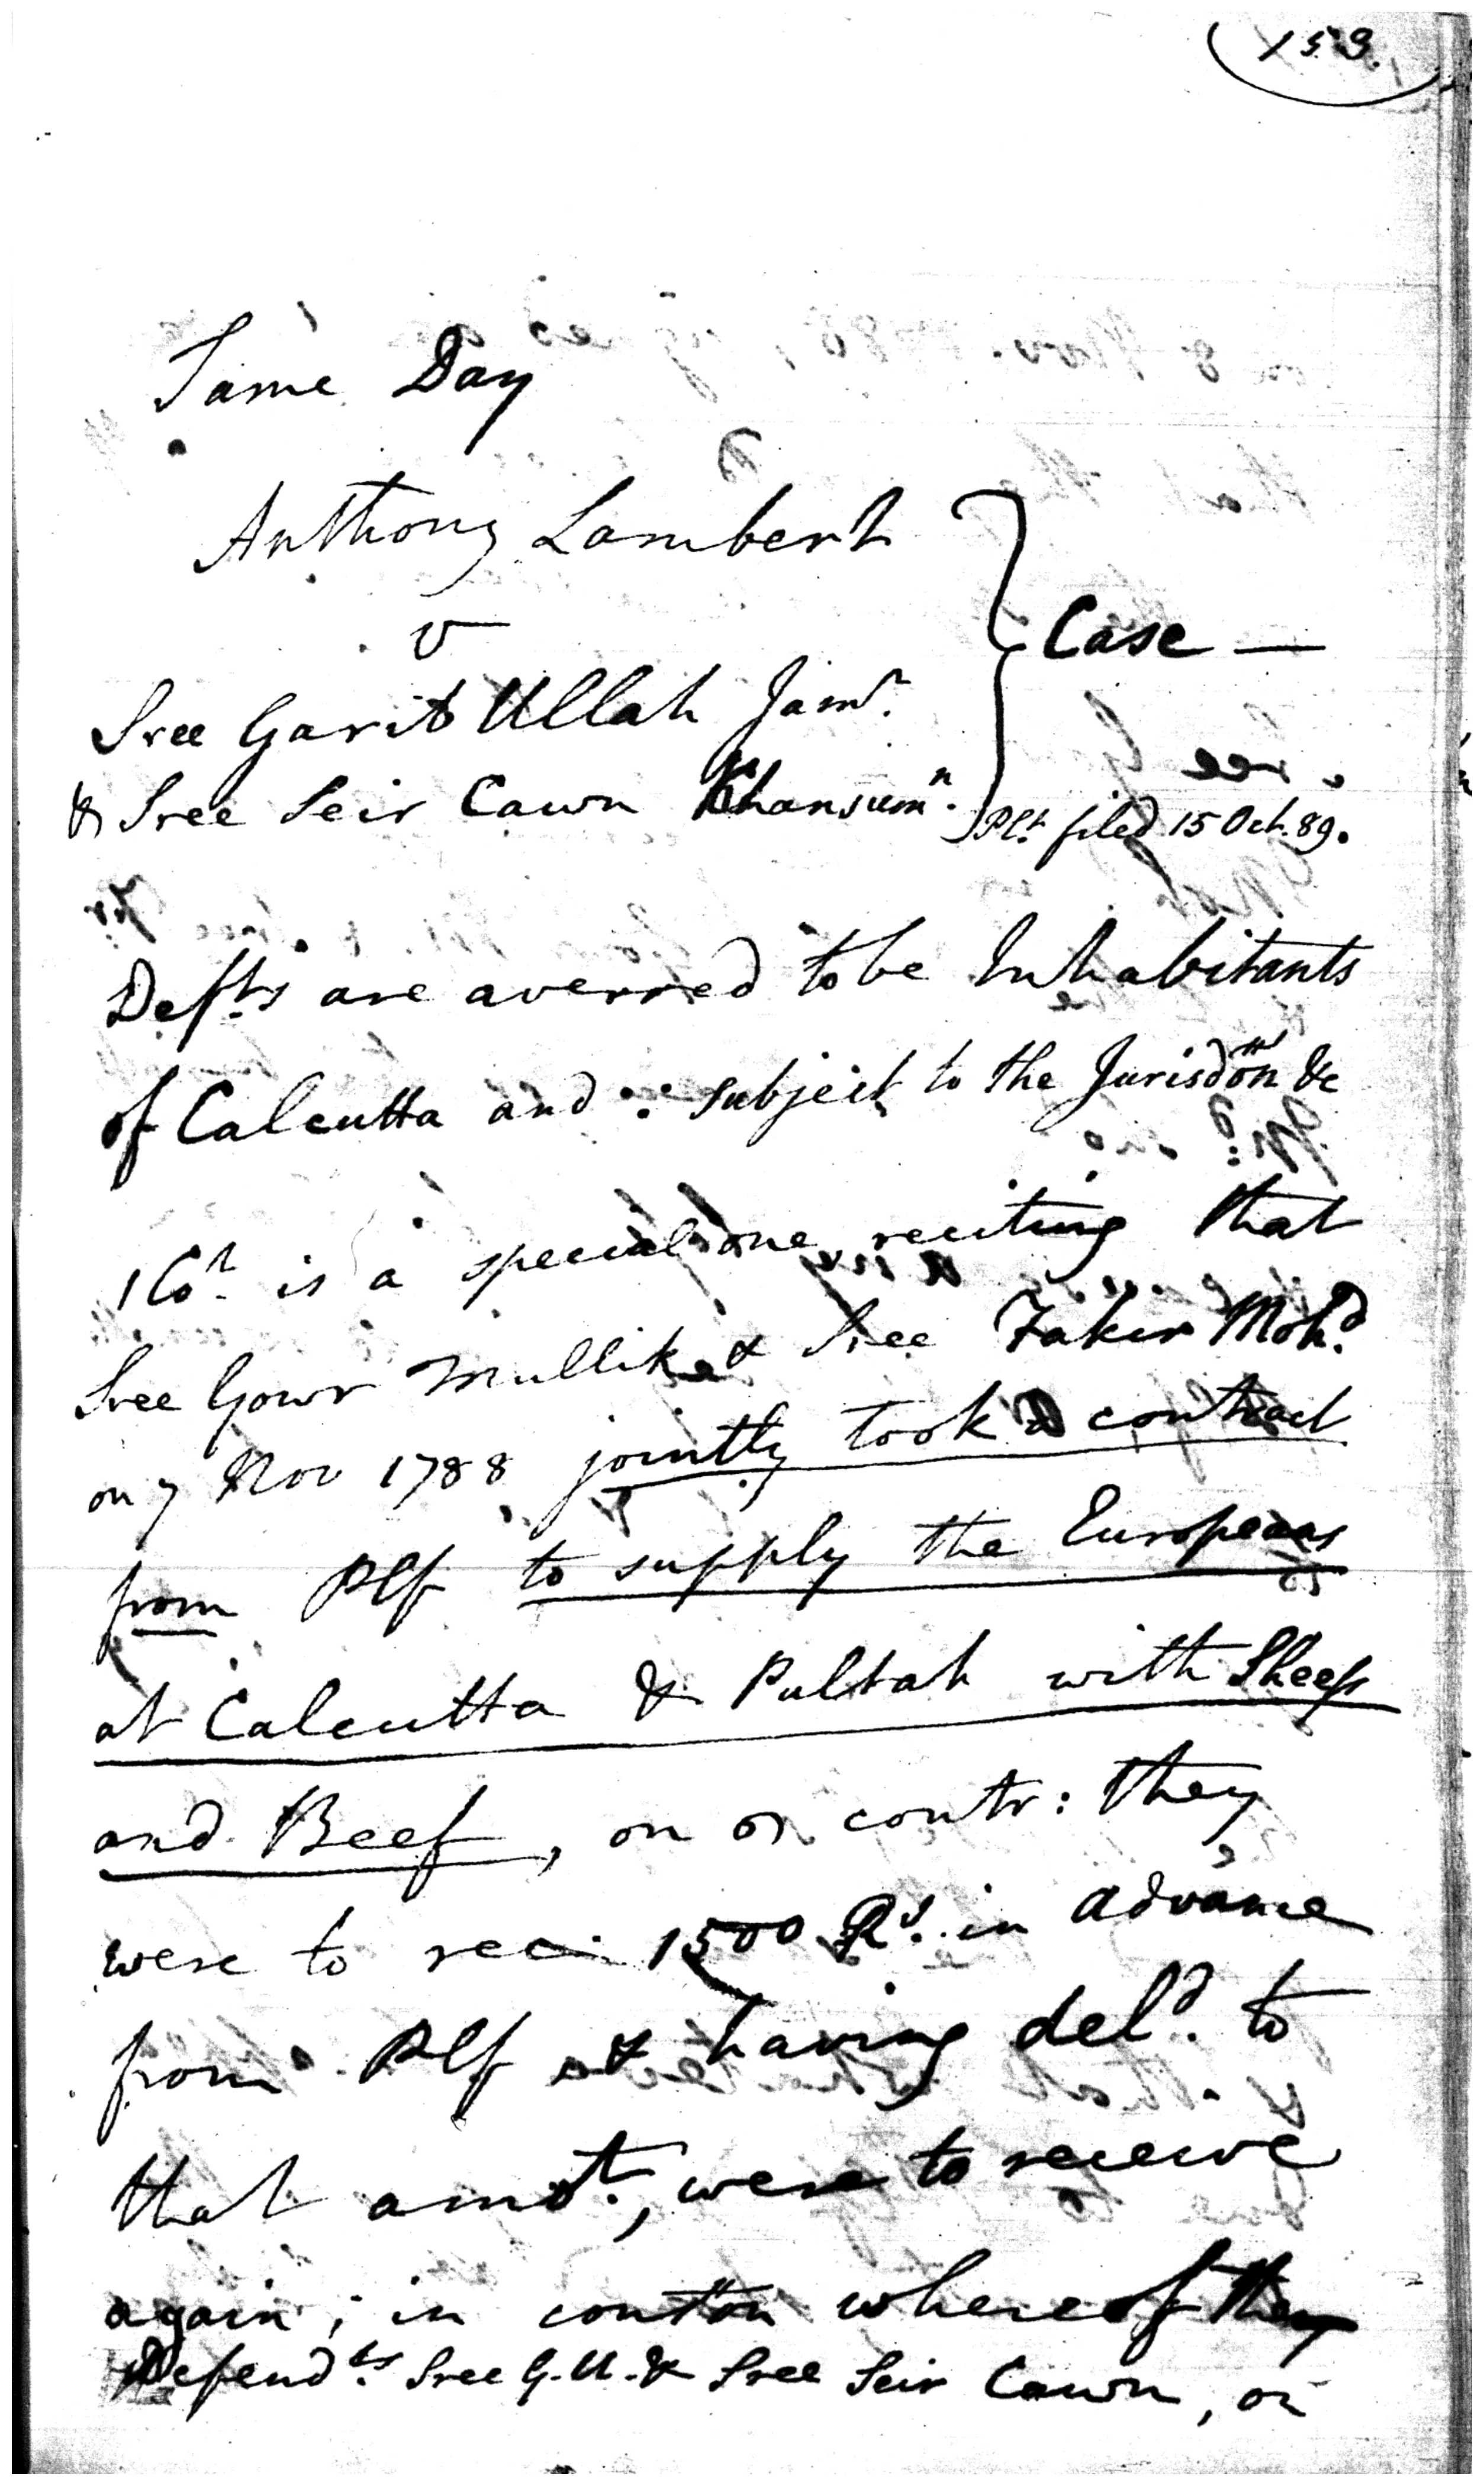 153.
Same Day
Anthony Lambert
v
Case —
Sree Garib Ullah Jamr.
& Sree Seir Cawn Khansumn.
Plt. filed 15 Oct. 89.
Defts are averred to be Inhabitants
of Calcutta and : subject to the Jurisdon &c
1 Cot. is a special one reciting that
Sree Gowr Mullik & Sree Fakir Mohd.
on 7 Nov 1788 jointly took a contract
from Plf to supply the Europeans
at Calcutta & Pultah with Sheep
and Beef, on on contr: they
were to rec: 1500 Rs. in advance
from Plf & having deld. to
that amot., were to receive
again; in conston whereof they
Defendts. Sree G. U. & Sree Seir Cawn, on